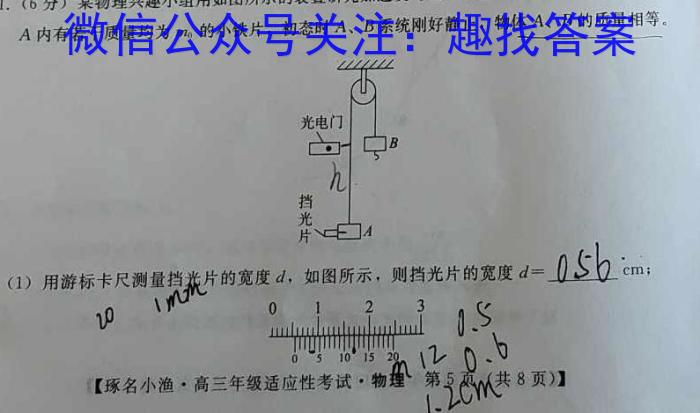 1.(6分)某物理兴趣小组用如图所示的装置研究
A内有 质量均为m₀的小铁片,初态时A、B系统刚好静止,物体A、B的质量相等。
微信公众号关注:趣找答案
光电门
B
h
挡
光
片
A
(1)用游标卡尺测量挡光片的宽度d,如图所示,则挡光片的宽度d=0.56cm;
20 1mm
0 1 2 3
0.5
0 5 10 15 20
12 0.6
【琢名小渔·高三年级适应性考试·物理 第5页(共8页)】
1.2cm